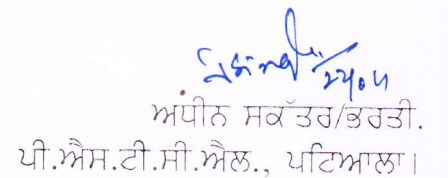 ਅਧੀਨ ਸਕੱਤਰ/ਭਰਤੀ.
ਪੀ.ਐਸ.ਟੀ.ਸੀ.ਐਲ., ਪਟਿਆਲਾ।